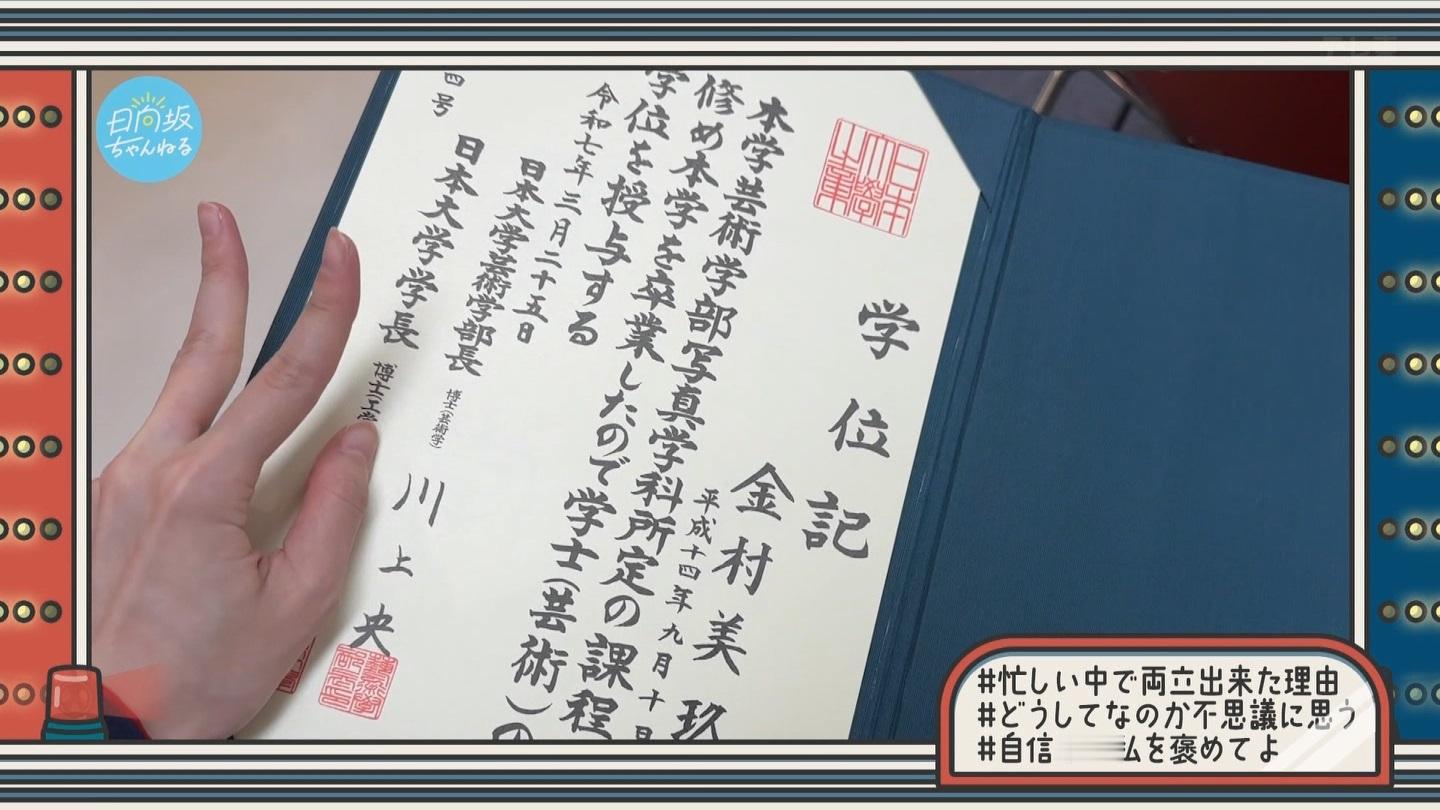 日向坂
ちゃんねる
日本大學之章
学位記
金村美玖
平成十四年九月十日
本学芸術学部写真学科所定の課程
修め本学を卒業したので学士（芸術）の
学位を授与する
令和七年三月二十五日
日本大学芸術学部長 博士（芸術学）
川上央
日本大学学長 博士（工学
四号
#忙しい中で両立出来た理由
#どうしてなのか不思議に思う
#自信 私を褒めてよ